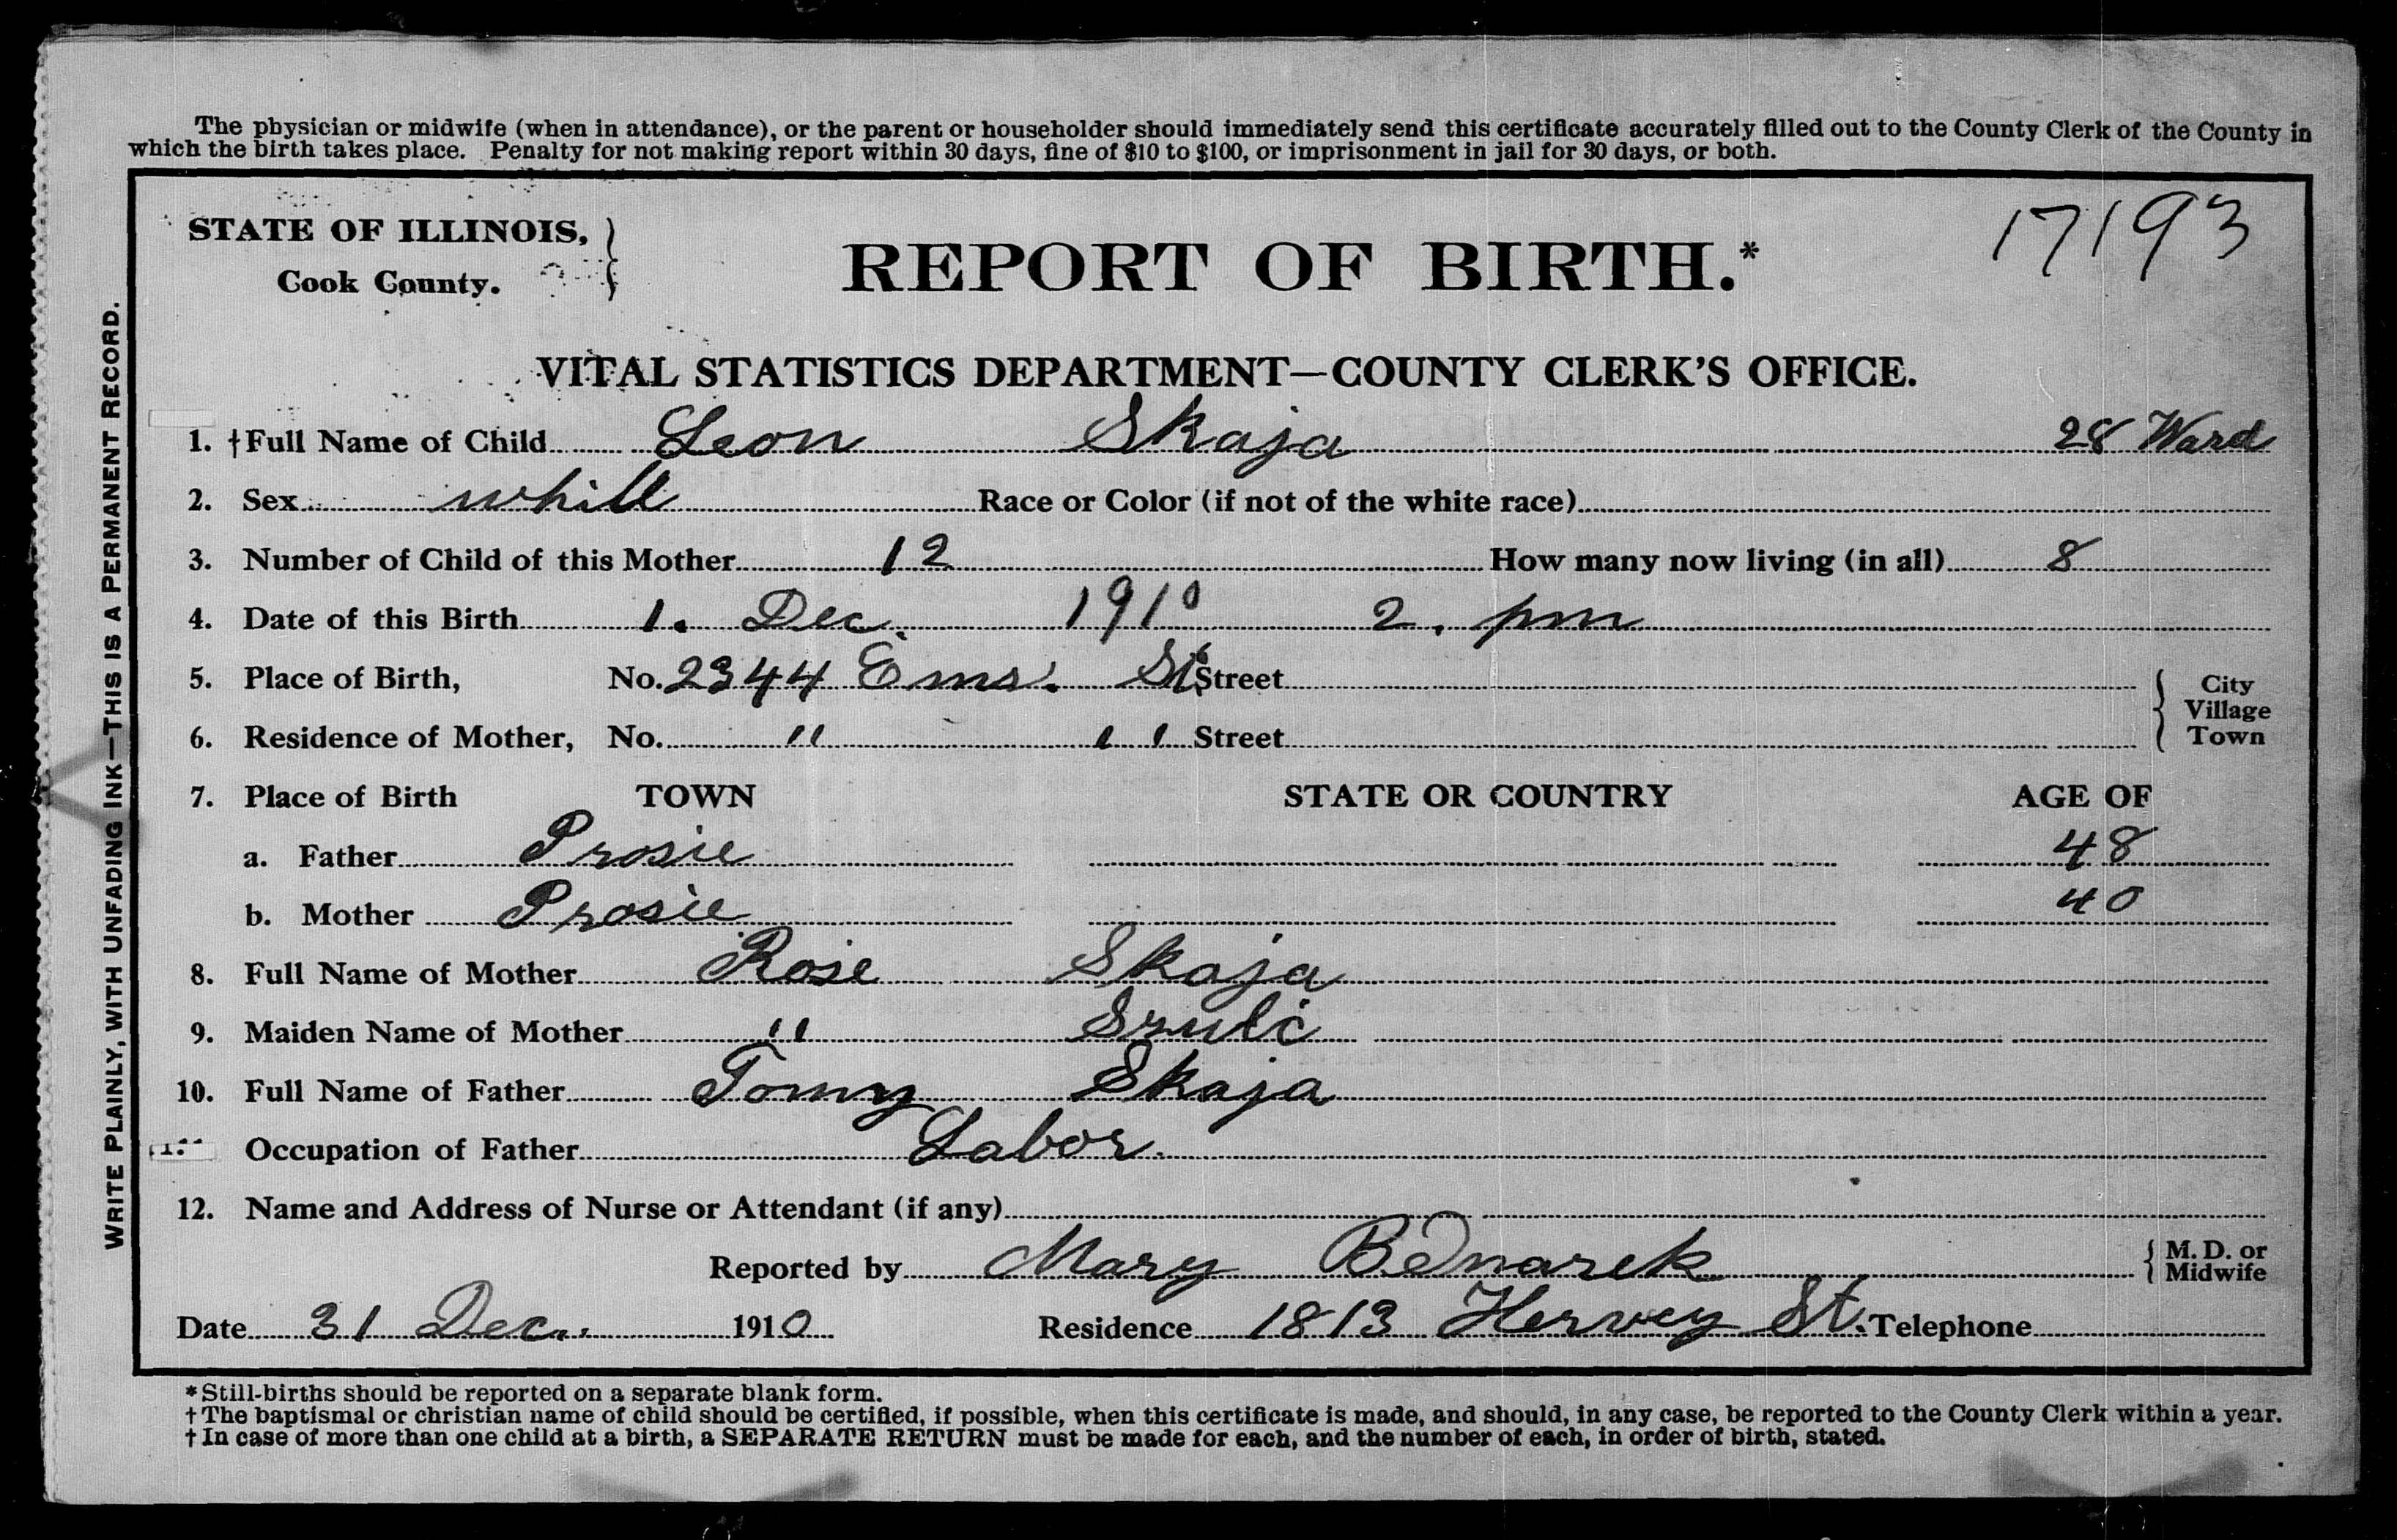 The physician or midwife (when in attendance), or the parent or householder should immediately send this certificate accurately filled out to the County Clerk of the County in
which the birth takes place. Penalty for not making report within 30 days, fine of $10 to $100, or imprisonment in jail for 30 days, or both.
WRITE PLAINLY, WITH UNFADING INK—THIS IS A PERMANENT RECORD.
STATE OF ILLINOIS,
Cook County.
REPORT OF BIRTH.*
17193
VITAL STATISTICS DEPARTMENT—COUNTY CLERK'S OFFICE.
1. †Full Name of Child Leon Skaja 28 Ward
2. Sex whill Race or Color (if not of the white race)
3. Number of Child of this Mother 12 How many now living (in all) 8
4. Date of this Birth 1. Dec. 1910 2. pm
5. Place of Birth, No. 2344 Ems. St. Street
6. Residence of Mother, No. " " Street
City
Village
Town
7. Place of Birth TOWN STATE OR COUNTRY AGE OF
a. Father Prosie 48
b. Mother Prosie 40
8. Full Name of Mother Rose Skaja
9. Maiden Name of Mother " Szulc
10. Full Name of Father Tomy Skaja
Occupation of Father Labor.
12. Name and Address of Nurse or Attendant (if any)
Reported by Mary Bednarek M. D. or Midwife
Date 31 Dec. 1910 Residence 1813 Hervey St. Telephone
*Still-births should be reported on a separate blank form.
†The baptismal or christian name of child should be certified, if possible, when this certificate is made, and should, in any case, be reported to the County Clerk within a year.
†In case of more than one child at a birth, a SEPARATE RETURN must be made for each, and the number of each, in order of birth, stated.